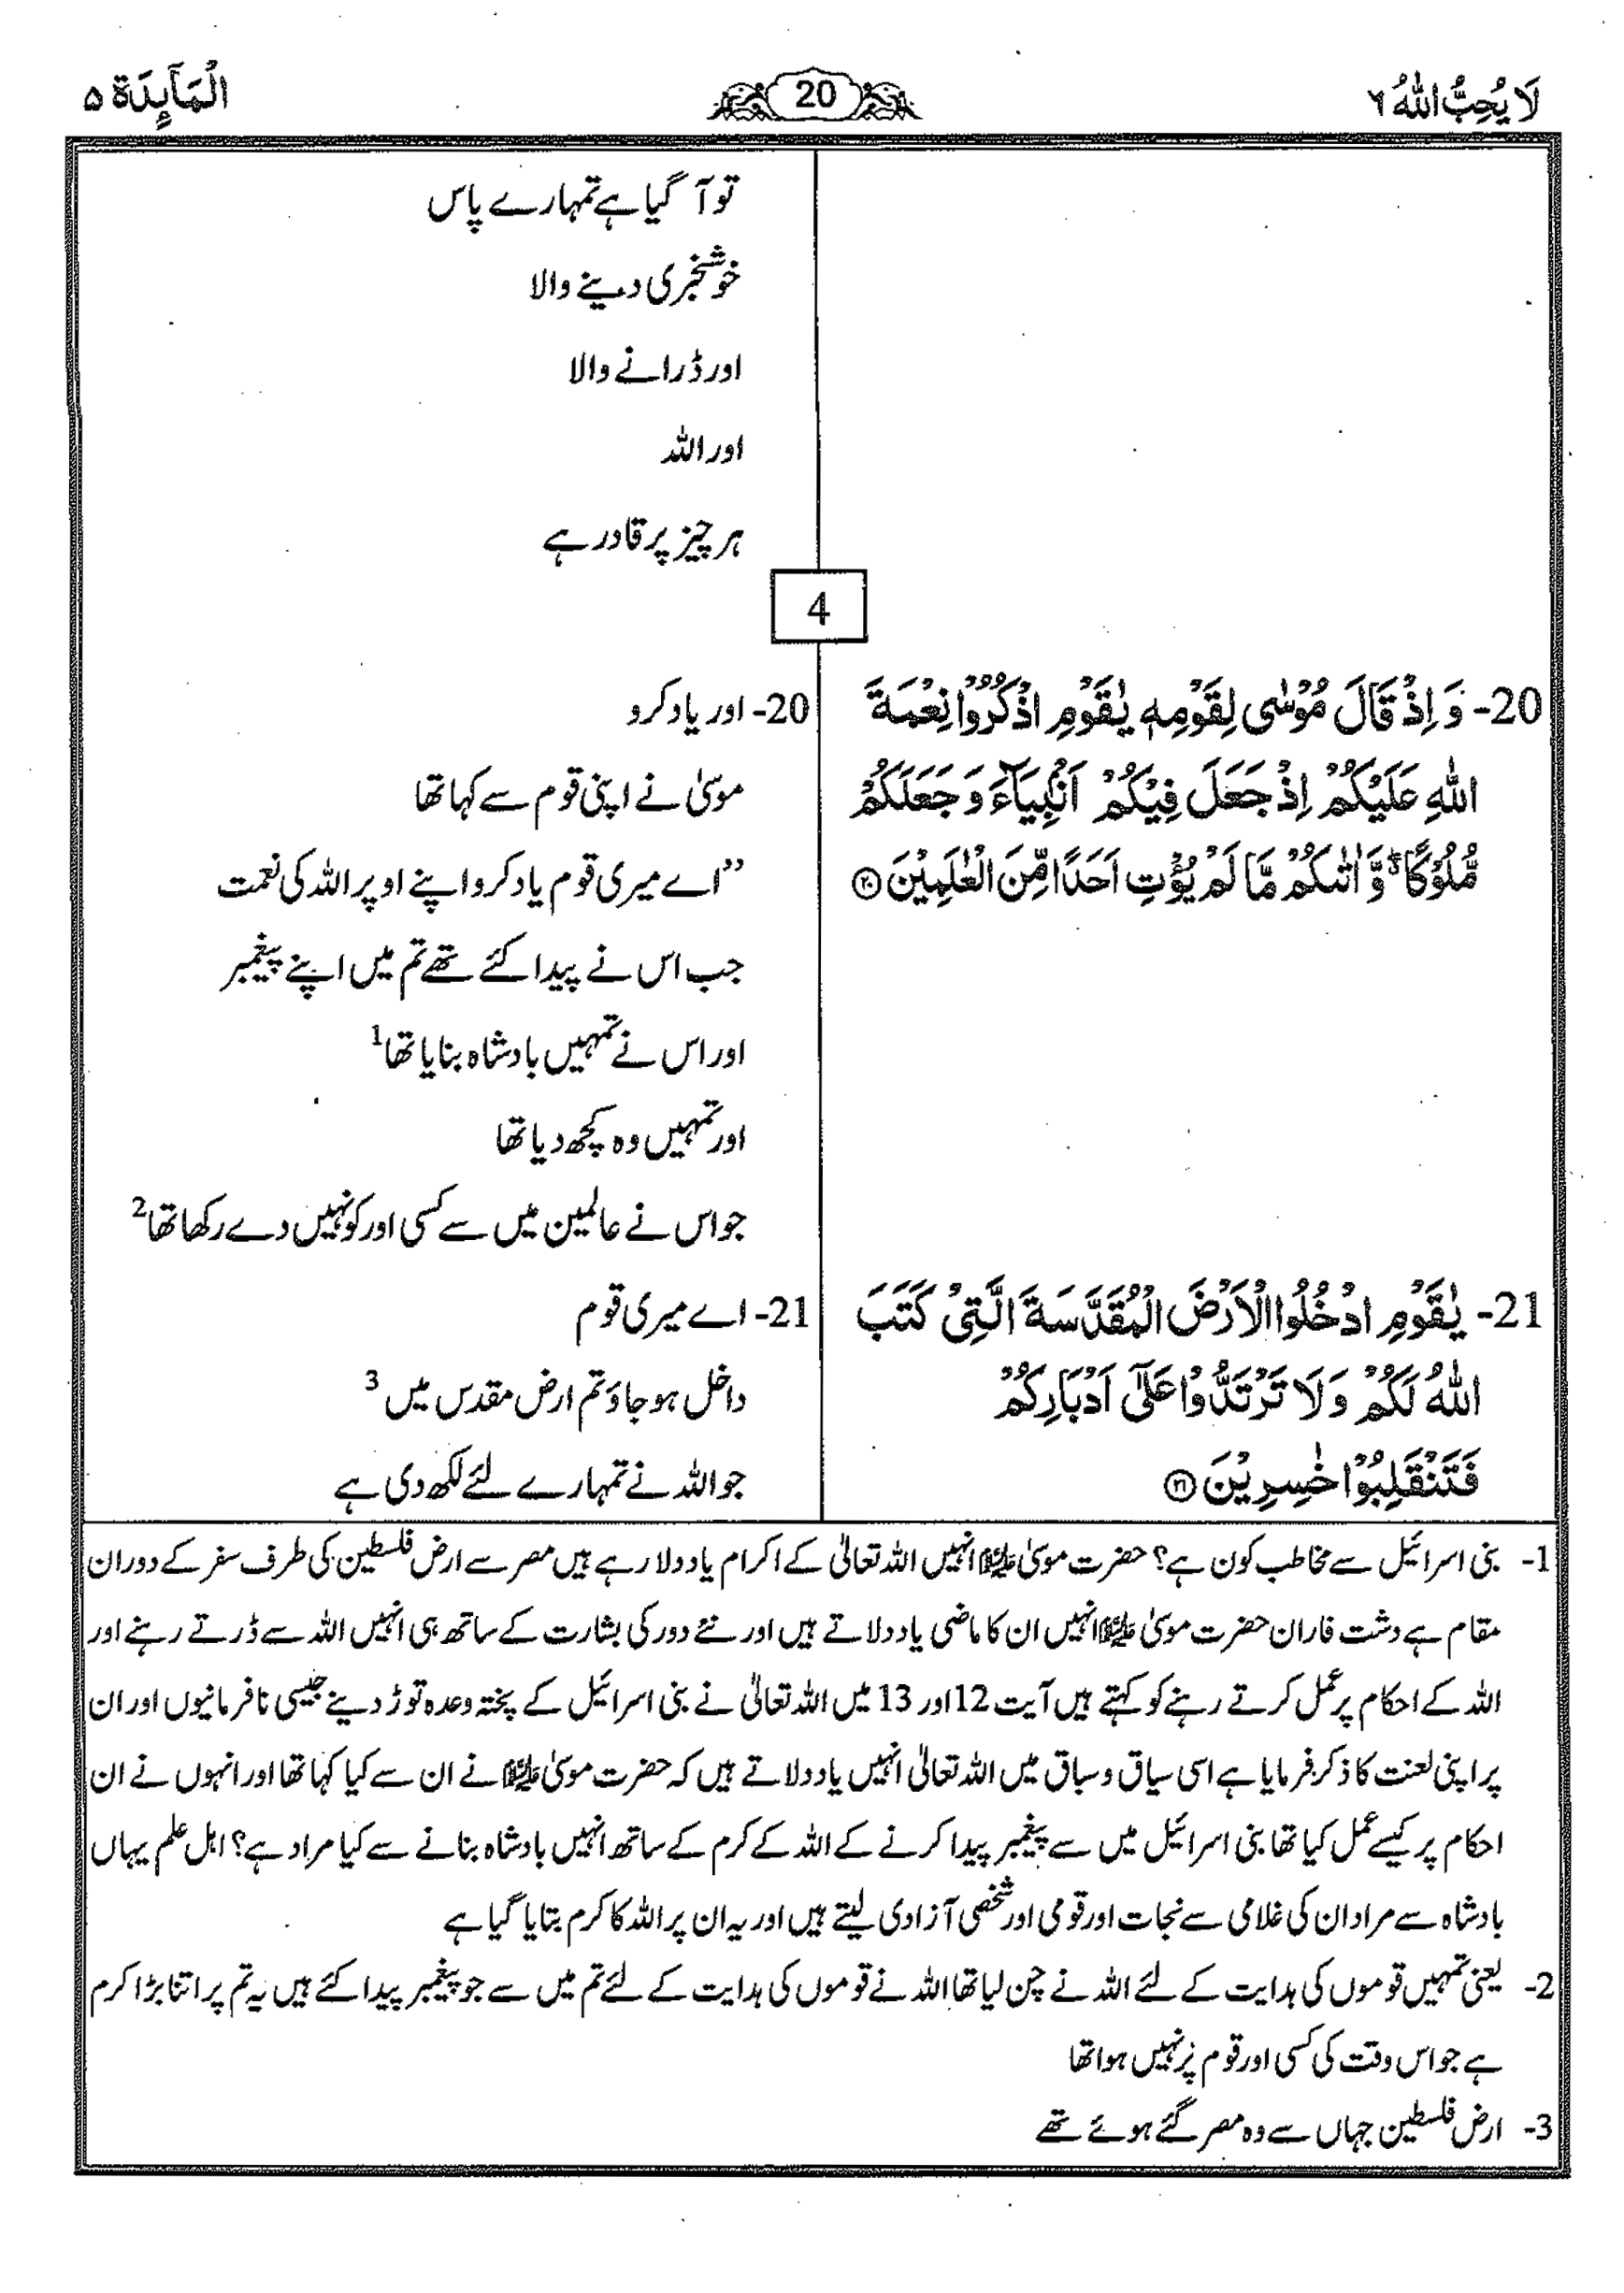 لَا يُحِبُّ اللّٰهُ ٦
20
الْمَآئِدَة ٥
تو آ گیا ہے تمہارے پاس
خوشخبری دینے والا
اور ڈرانے والا
اور اللہ
ہر چیز پر قادر ہے
4
20- وَ اِذْ قَالَ مُوْسٰى لِقَوْمِهٖ يٰقَوْمِ اذْكُرُوْا نِعْمَةَ
اللّٰهِ عَلَيْكُمْ اِذْ جَعَلَ فِيْكُمْ اَنْۢبِيَآءَ وَ جَعَلَكُمْ
مُّلُوْكًا ۖ وَّ اٰتٰىكُمْ مَّا لَمْ يُؤْتِ اَحَدًا مِّنَ الْعٰلَمِيْنَ ۝۲۰
20- اور یاد کرو
موسیٰ نے اپنی قوم سے کہا تھا
”اے میری قوم یاد کرو اپنے اوپر اللہ کی نعمت
جب اس نے پیدا کئے تھے تم میں اپنے پیغمبر
اور اس نے تمہیں بادشاہ بنایا تھا1
اور تمہیں وہ کچھ دیا تھا
جو اس نے عالمین میں سے کسی اور کو نہیں دے رکھا تھا2
21- يٰقَوْمِ ادْخُلُوا الْاَرْضَ الْمُقَدَّسَةَ الَّتِىْ كَتَبَ
اللّٰهُ لَكُمْ وَ لَا تَرْتَدُّوْا عَلٰٓى اَدْبَارِكُمْ
فَتَنْقَلِبُوْا خٰسِرِيْنَ ۝۲۱
21- اے میری قوم
داخل ہو جاؤ تم ارض مقدس میں 3
جو اللہ نے تمہارے لئے لکھ دی ہے
1- بنی اسرائیل سے مخاطب کون ہے؟ حضرت موسیٰ علیہ السلام انہیں اللہ تعالیٰ کے اکرام یاد دلا رہے ہیں مصر سے ارض فلسطین کی طرف سفر کے دوران
مقام ہے دشت فاران حضرت موسیٰ علیہ السلام انہیں ان کا ماضی یاد دلاتے ہیں اور نئے دور کی بشارت کے ساتھ ہی انہیں اللہ سے ڈرتے رہنے اور
اللہ کے احکام پر عمل کرتے رہنے کو کہتے ہیں آیت 12 اور 13 میں اللہ تعالیٰ نے بنی اسرائیل کے پختہ وعدہ توڑ دینے جیسی نافرمانیوں اور ان
پر اپنی لعنت کا ذکر فرمایا ہے اسی سیاق و سباق میں اللہ تعالیٰ انہیں یاد دلاتے ہیں کہ حضرت موسیٰ علیہ السلام نے ان سے کیا کہا تھا اور انہوں نے ان
احکام پر کیسے عمل کیا تھا بنی اسرائیل میں سے پیغمبر پیدا کرنے کے اللہ کے کرم کے ساتھ انہیں بادشاہ بنانے سے کیا مراد ہے؟ اہل علم یہاں
بادشاہ سے مراد ان کی غلامی سے نجات اور قومی اور شخصی آزادی لیتے ہیں اور یہ ان پر اللہ کا کرم بتایا گیا ہے
2- یعنی تمہیں قوموں کی ہدایت کے لئے اللہ نے چن لیا تھا اللہ نے قوموں کی ہدایت کے لئے تم میں سے جو پیغمبر پیدا کئے ہیں یہ تم پر اتنا بڑا کرم
ہے جو اس وقت کی کسی اور قوم پر نہیں ہوا تھا
3- ارض فلسطین جہاں سے وہ مصر گئے ہوئے تھے